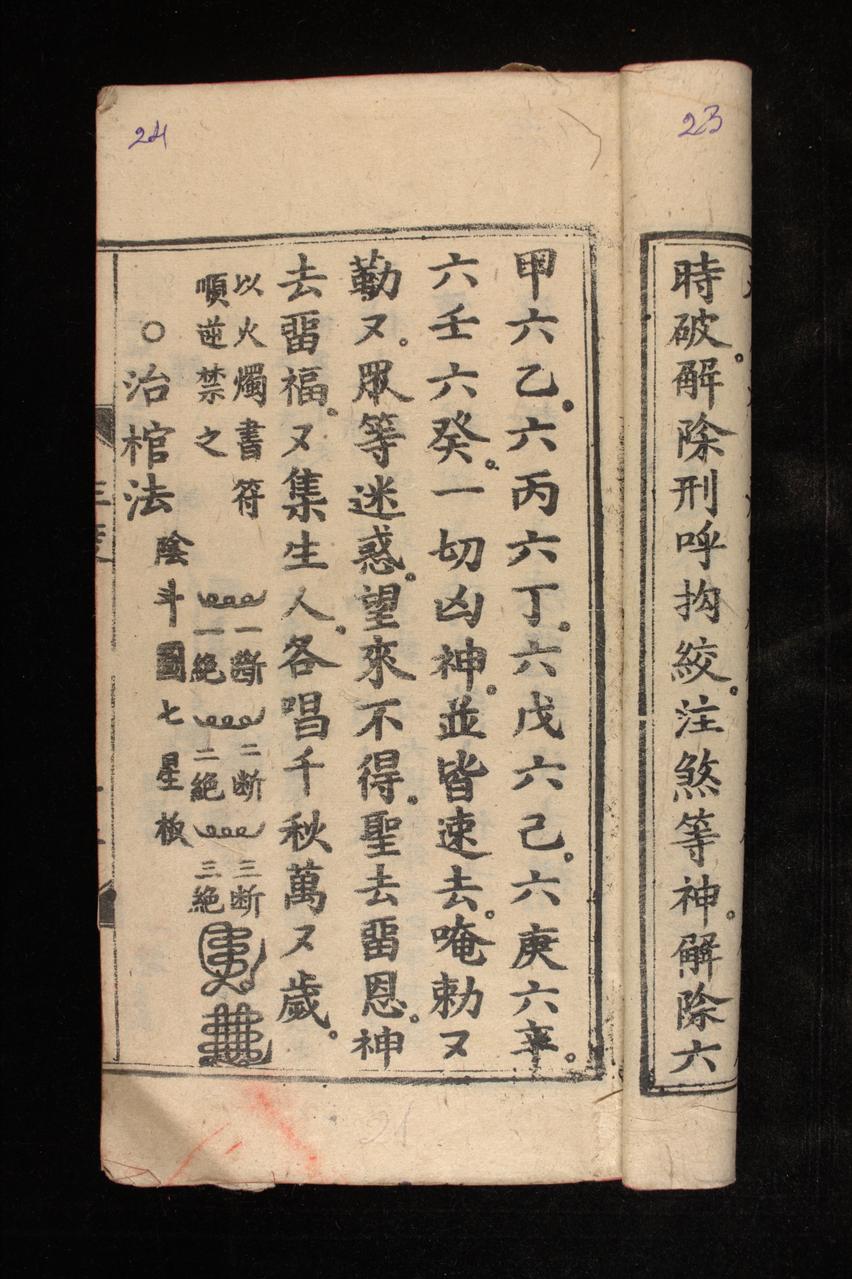 23
時破。解除刑呼拘絞。注煞等神。解除六
24
甲六乙。六丙六丁。六戊六己。六庚六辛。
六壬六癸。一切凶神。並皆速去。唵勅又
勒又。眾等迷惑。望來不得。聖去畱恩。神
去畱福。又集生人。各唱千秋萬又歲。
以火燭書符 一断 二断 三断
順逆禁之 一絕 二絕 三絕
○治棺法 陰斗圖七星板
21